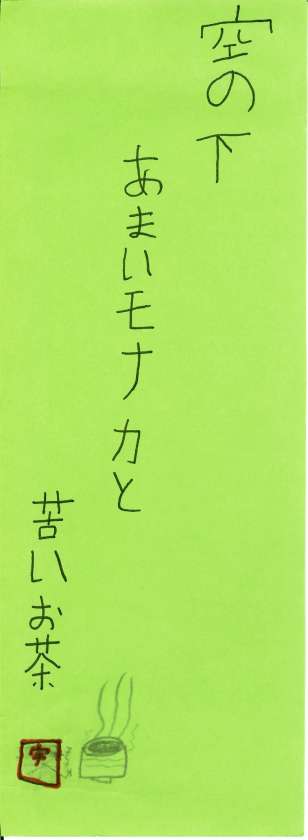 空の下
あまいモナカと
苦いお茶